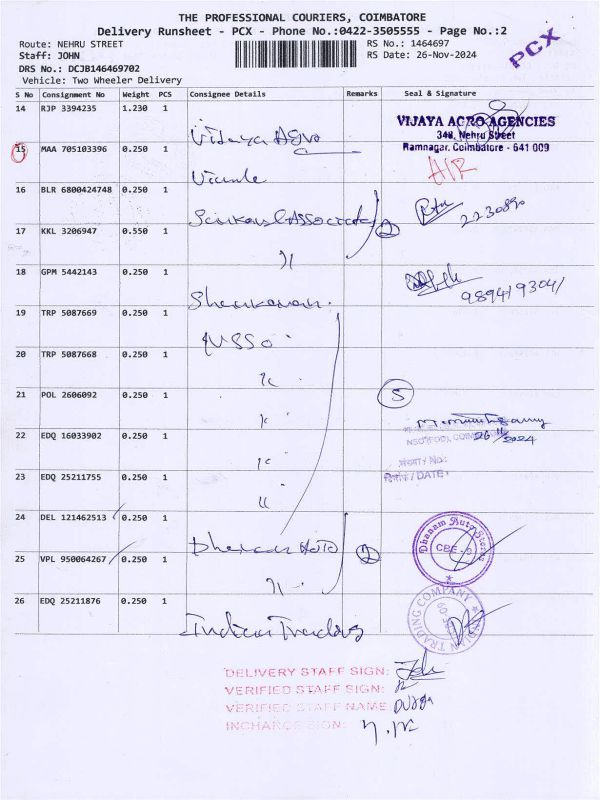 THE PROFESSIONAL COURIERS, COIMBATORE
Delivery Runsheet - PCX - Phone No.:0422-3505555 - Page No.:2
Route: NEHRU STREET
RS No.: 1464697
PCX
Staff: JOHN
RS Date: 26-Nov-2024
DRS No.: DCJB146469702
Vehicle: Two Wheeler Delivery
S No Consignment No Weight PCS Consignee Details Remarks Seal & Signature
14 RJP 3394235 1.230 1 Vijaya Agro
VIJAYA AGRO AGENCIES
348, Nehru Street
Ramnagar, Coimbatore - 641 009
15 MAA 705103396 0.250 1
AIR
16 BLR 6800424748 0.250 1 Associates
2
2230890
17 KKL 3206947 0.550 1 "
18 GPM 5442143 0.250 1
9894193041
19 TRP 5087669 0.250 1 NSSO
20 TRP 5087668 0.250 1 "
21 POL 2606092 0.250 1 "
5
22 EDQ 16033902 0.250 1 "
NSO (FOD), COIMBATORE
26/11/2024
संख्या/No:
दिनांक/DATE:
23 EDQ 25211755 0.250 1 "
24 DEL 121462513 0.250 1 Auto
2
Dhanam Auto Stores
CBE - 9
25 VPL 950064267 0.250 1 "
26 EDQ 25211876 0.250 1 Indian Trading
INDIAN TRADING COMPANY
DELIVERY STAFF SIGN:
VERIFIED STAFF SIGN:
VERIFIED STAFF NAME: Durga
INCHARGE SIGN: